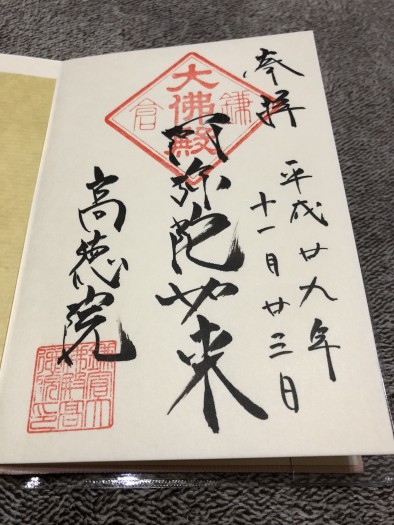 奉拝
平成廿九年
十一月廿三日
鎌倉
大佛殿
阿弥陀如来
高徳院